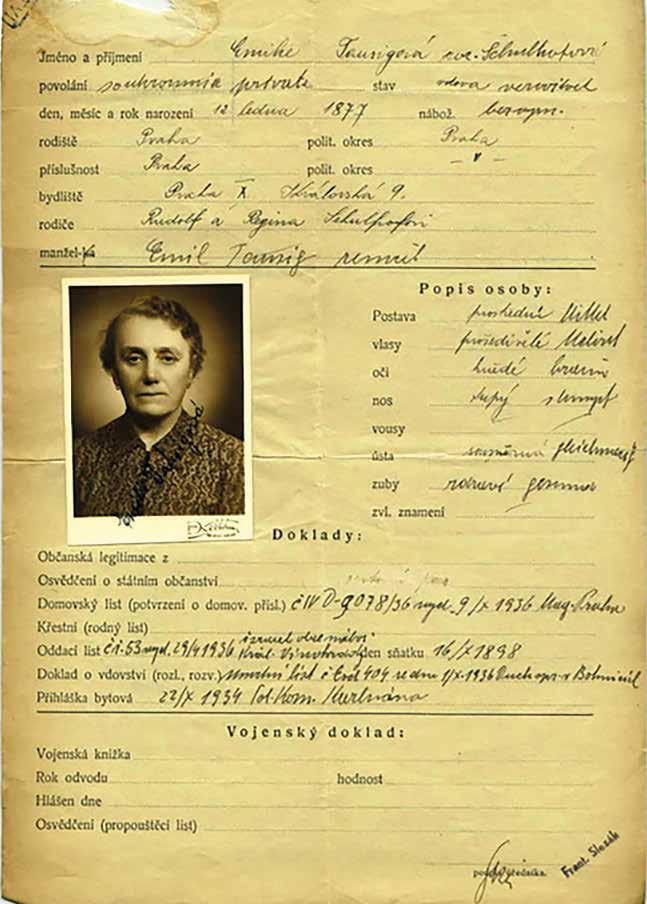 Jméno a příjmení Emilie Taussigová roz. Schulhofová
povolání soukromnice private stav vdova verwitwet
den, měsíc a rok narození 12 ledna 1877 nábož. bezvyzn.
rodiště Praha polit. okres Praha
příslušnost Praha polit. okres - " -
bydliště Praha X Královská 9.
rodiče Rudolf a Regina Schulhofovi
manžel-ka Emil Taussig zemřel
Popis osoby:
Postava prostřední Mittel
vlasy prošedivělé Meliert
oči hnědé braun
nos tupý stumpf
vousy
ústa souměrná gleichmäss
zuby zdravé gesund
zvl. znamení
Doklady:
Občanská legitimace z
Osvědčení o státním občanství
Domovský list (potvrzení o domov. přísl.) č IV D-9078/36 vyd. 9/X 1936 Mag. Praha
Křestní (rodný list)
Oddací list č. 53 vyd. 29/4 1936 israel. Král. Vinohrady den sňatku 16/X 1898
Doklad o vdovství (rozl., rozv.) úmrtní list 404 ze dne 1/X 1936 v Bohnicích
Přihláška bytová 22/X 1934 Pol. Kom. Karlín
Vojenský doklad:
Vojenská knížka
Rok odvodu hodnost
Hlášen dne
Osvědčení (propouštěcí list)
Frant. Slezák